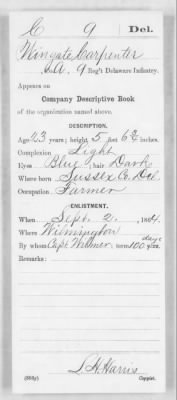 C 9 Del.
Wingate Carpenter
Co. A, 9 Reg't Delaware Infantry.
Appears on
Company Descriptive Book
of the organization named above.
DESCRIPTION.
Age 23 years; height 5 feet 6¾ inches.
Complexion Light
Eyes Blue, hair Dark
Where born Sussex Co. Del
Occupation Farmer
ENLISTMENT.
When Sept. 2, 1864.
Where Wilmington
By whom Capt Wilmer; term 100 days y'rs.
Remarks:
L. H. Harris
(383g) Copyist.